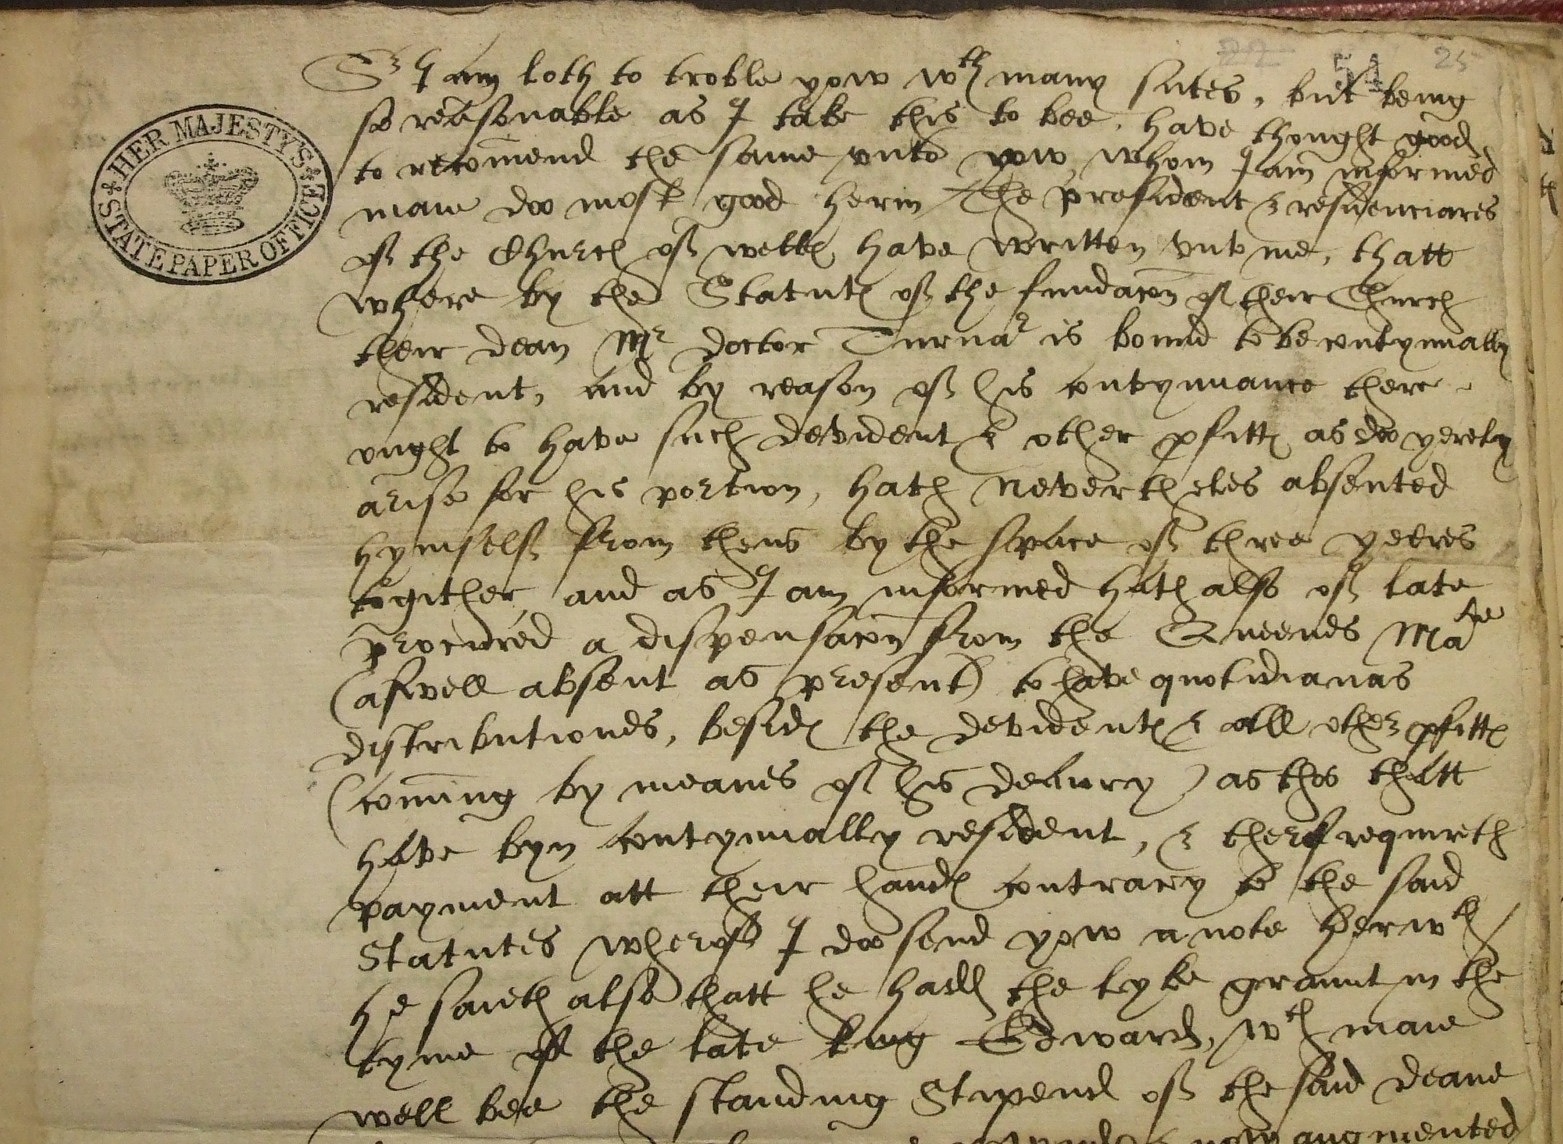 22 51 25
HER MAJESTY'S
STATE PAPER OFFICE
Sr I am loth to troble yow wth many sutes, but being
so reasonable as I take this to bee, have thought good
to recomend the same unto yow, whom I am informed
maie doo most good herin The president & residenciares
off the Church off Wells have written unto me, thatt
where by the Statutes off the fundacon off their Church
their dean Mr doctor Turnar is bound to be contynually
resident, and by reason off his contynuance there
ought to have such devident & other pfittes as doo yerely
arise for his portion, hath neverthelis absented
hymselff from thens by the space off three yeeres
togither, and as I am informed hath also off late
procured a dispensacon from the Queenes Matie
(aswell absent as present) to have quotidianas
distributiones, besides the devidentes & all other pfittes
(coming by meanes off his deanry) as thos thatt
have byn contynually resident, & therfore requireth
payment att their handes contrary to the said
Statutes wheroff I doo send yow a note herwth
he saieth also thatt he hadd the lyke graunt in the
tyme off the late king Edward, wch maie
well bee the standing Stipend off the said deane
now augmented